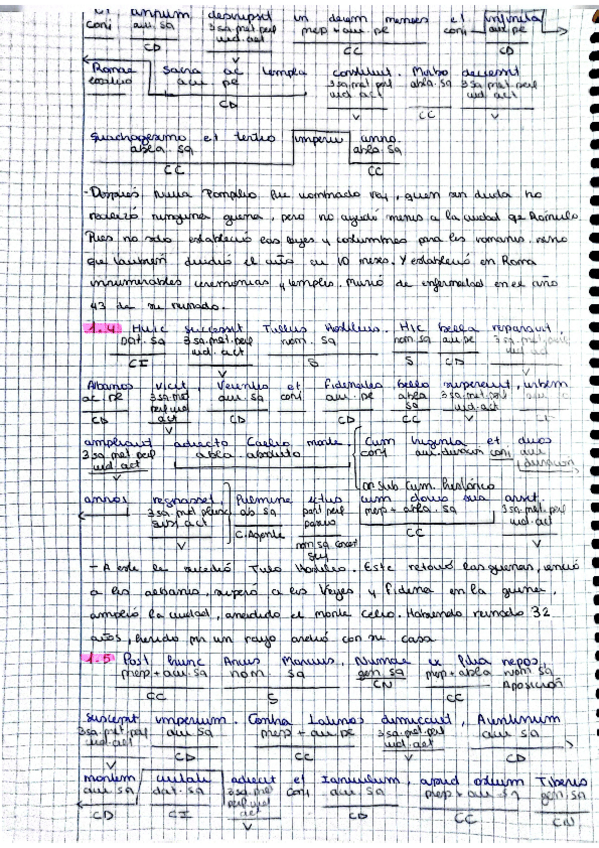 et annum descripsit in decem menses et infinita
conj acu. sg 3sg. pret. perf ind. act prep + acu. pl conj acu. pl
CD V CC CD
Romae sacra ac templa constituit. Morbo decessit
locativo acu pl 3sg. pret. perf ind. act abla. sg 3sg. pret. perf ind. act
CD V CC V
quadragesimo et tertio imperii anno.
abla. sg abla. sg
CC CC
- Después Numa Pompilio fue nombrado rey, quien sin duda no
realizó ninguna guerra, pero no ayudó menos a la ciudad que Rómulo.
Pues no solo estableció las leyes y costumbres para los romanos, sino
que también dividió el año en 10 meses. Y estableció en Roma
innumerables ceremonias y templos. Murió de enfermedad en el año
43 de su reinado.
1.4 Huic successit Tullus Hostilius. Hic bella reparavit,
dat. sg 3sg. pret. perf ind. act nom. sg nom. sg acu. pl 3sg. pret. perf ind. act
CI V S S CD V
Albanos vicit, Veientes et Fidenates bello superavit, urbem
ac. pl 3sg. pret perf. ind act acu. conj acu. pl abla sg 3sg. pret. perf ind. act
CD V CD CD CC V CD
ampliavit adiecto Caelio monte. Cum triginta et duos
3sg. pret. perf ind. act abla. absoluto conj acu. duración conj acu duración
V Or. Sub Cum. histórico
annos regnasset, fulmine ictus cum domo sua arsit.
3sg. pret. plusc subj. act ab. sg part. perf pasivo prep + abla. sg 3sg. pret. perf ind. act
V C. Agente nom. sg concert Suj CC V
- A este le sucedió Tulo Hostilio. Este retomó las guerras, venció
a los albanos, superó a los Veyes y Fidena en la guerra,
amplió la ciudad, añadido el monte Celio. Habiendo reinado 32
años, herido por un rayo ardió con su casa
1.5 Post hunc Ancus Marcius, Numae ex filia nepos,
prep + acu. sg nom. sg gen. sg prep + abla nom. sg
CC S CN CC Aposición
suscepit imperium. Contra Latinos dimicavit, Aventinum
3sg. pret. perf ind. act acu. sg prep + acu. pl 3sg. pret. perf ind. act acu. sg
V CD CC V CD
montem civitati adiecit et Ianiculum, apud ostium Tiberis
acu. sg dat. sg 3sg. pret perf. ind act conj acu. sg prep + acu. sg gen. sg
CD CI V CD CC CN